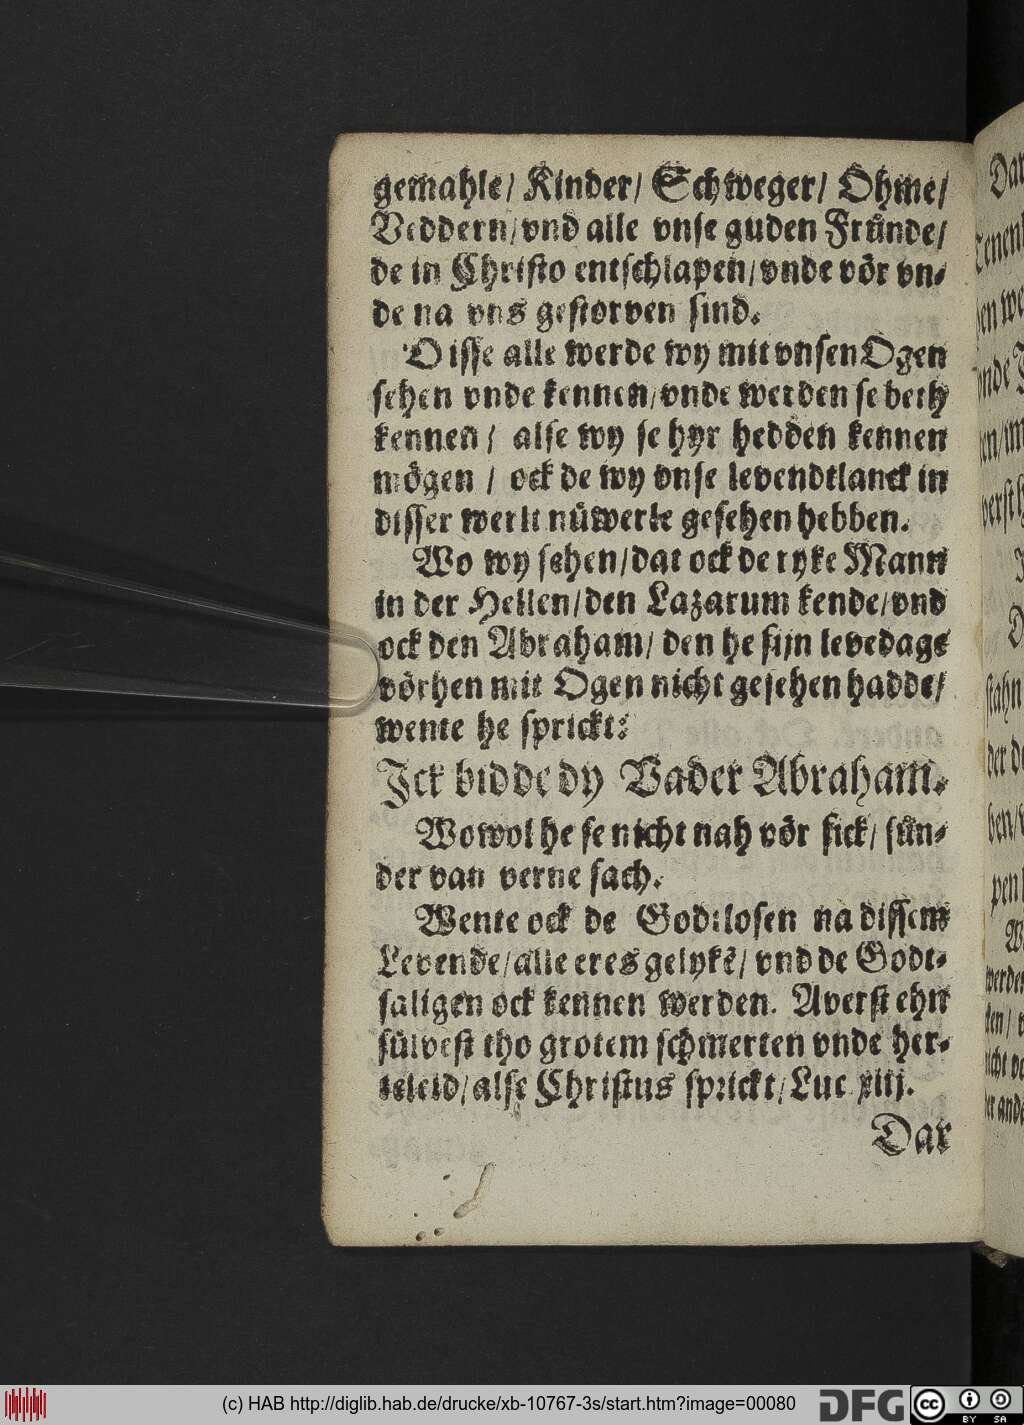 gemahle/ Kinder/ Schweger/ Ohme/
Veddern/ vnd alle vnse guden Fründe/
de in Christo entschlapen/ vnde vör vn-
de na vns gestorven sind.
Disse alle werde wy mit vnsen Ogen
sehen vnde kennen/ vnde werden se beth
kennen/ alse wy se hyr hedden kennen
mögen/ ock de wy vnse levendtlanck in
disser werlt nüwerle gesehen hebben.
Wo wy sehen/ dat ock de ryke Mann
in der Hellen/ den Lazarum kende/ vnd
ock den Abraham/ den he sijn levedage
vörhen mit Ogen nicht gesehen hadde/
wente he sprickt:
Jck bidde dy Vader Abraham.
Wowol he se nicht nah vör sick/ sün-
der van verne sach.
Wente ock de Godtlosen na dissem
Levende/ alle eres gelykē/ vnd de Godt-
saligen ock kennen werden. Averst ehn
sülvest tho grotem schmerten vnde her-
teleid/ alse Christus sprickt/ Luc xiij.
Dar
(c) HAB http://diglib.hab.de/drucke/xb-10767-3s/start.htm?image=00080
DFG
cc
BY SA